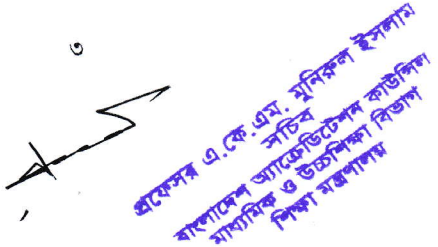 ৩
প্রফেসর এ.কে.এম. মুনিরুল ইসলাম
সচিব
বাংলাদেশ অ্যাক্রেডিটেশন কাউন্সিল
মাধ্যমিক ও উচ্চশিক্ষা বিভাগ
শিক্ষা মন্ত্রণালয়